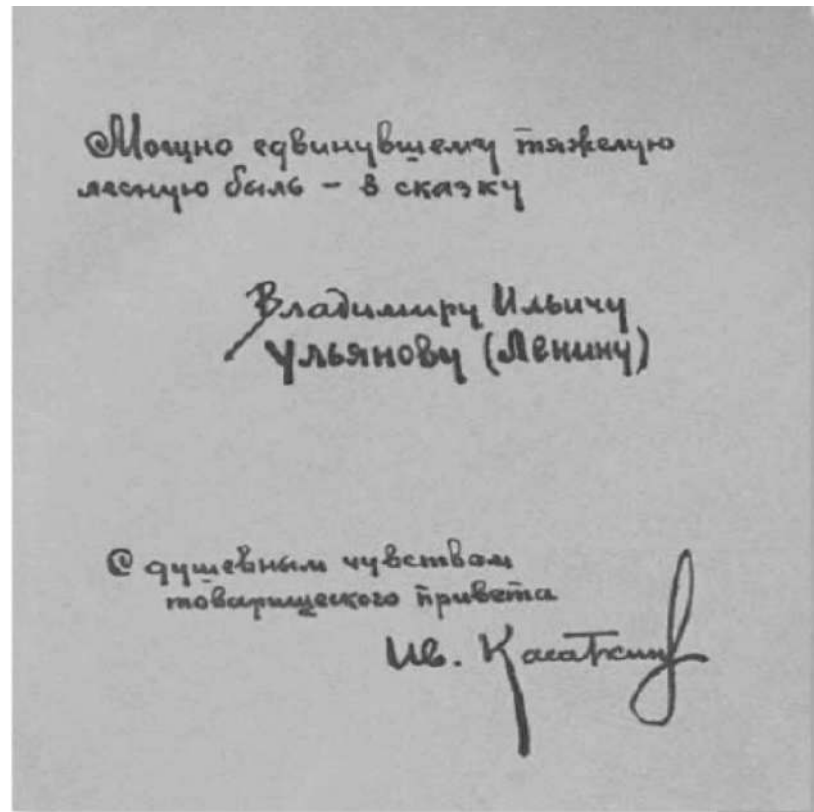 Мощно сдвинувшему тяжелую
лесную быль - в сказку
Владимиру Ильичу
Ульянову (Ленину)
С душевным чувством
товарищеского привета
Ив. Касаткин